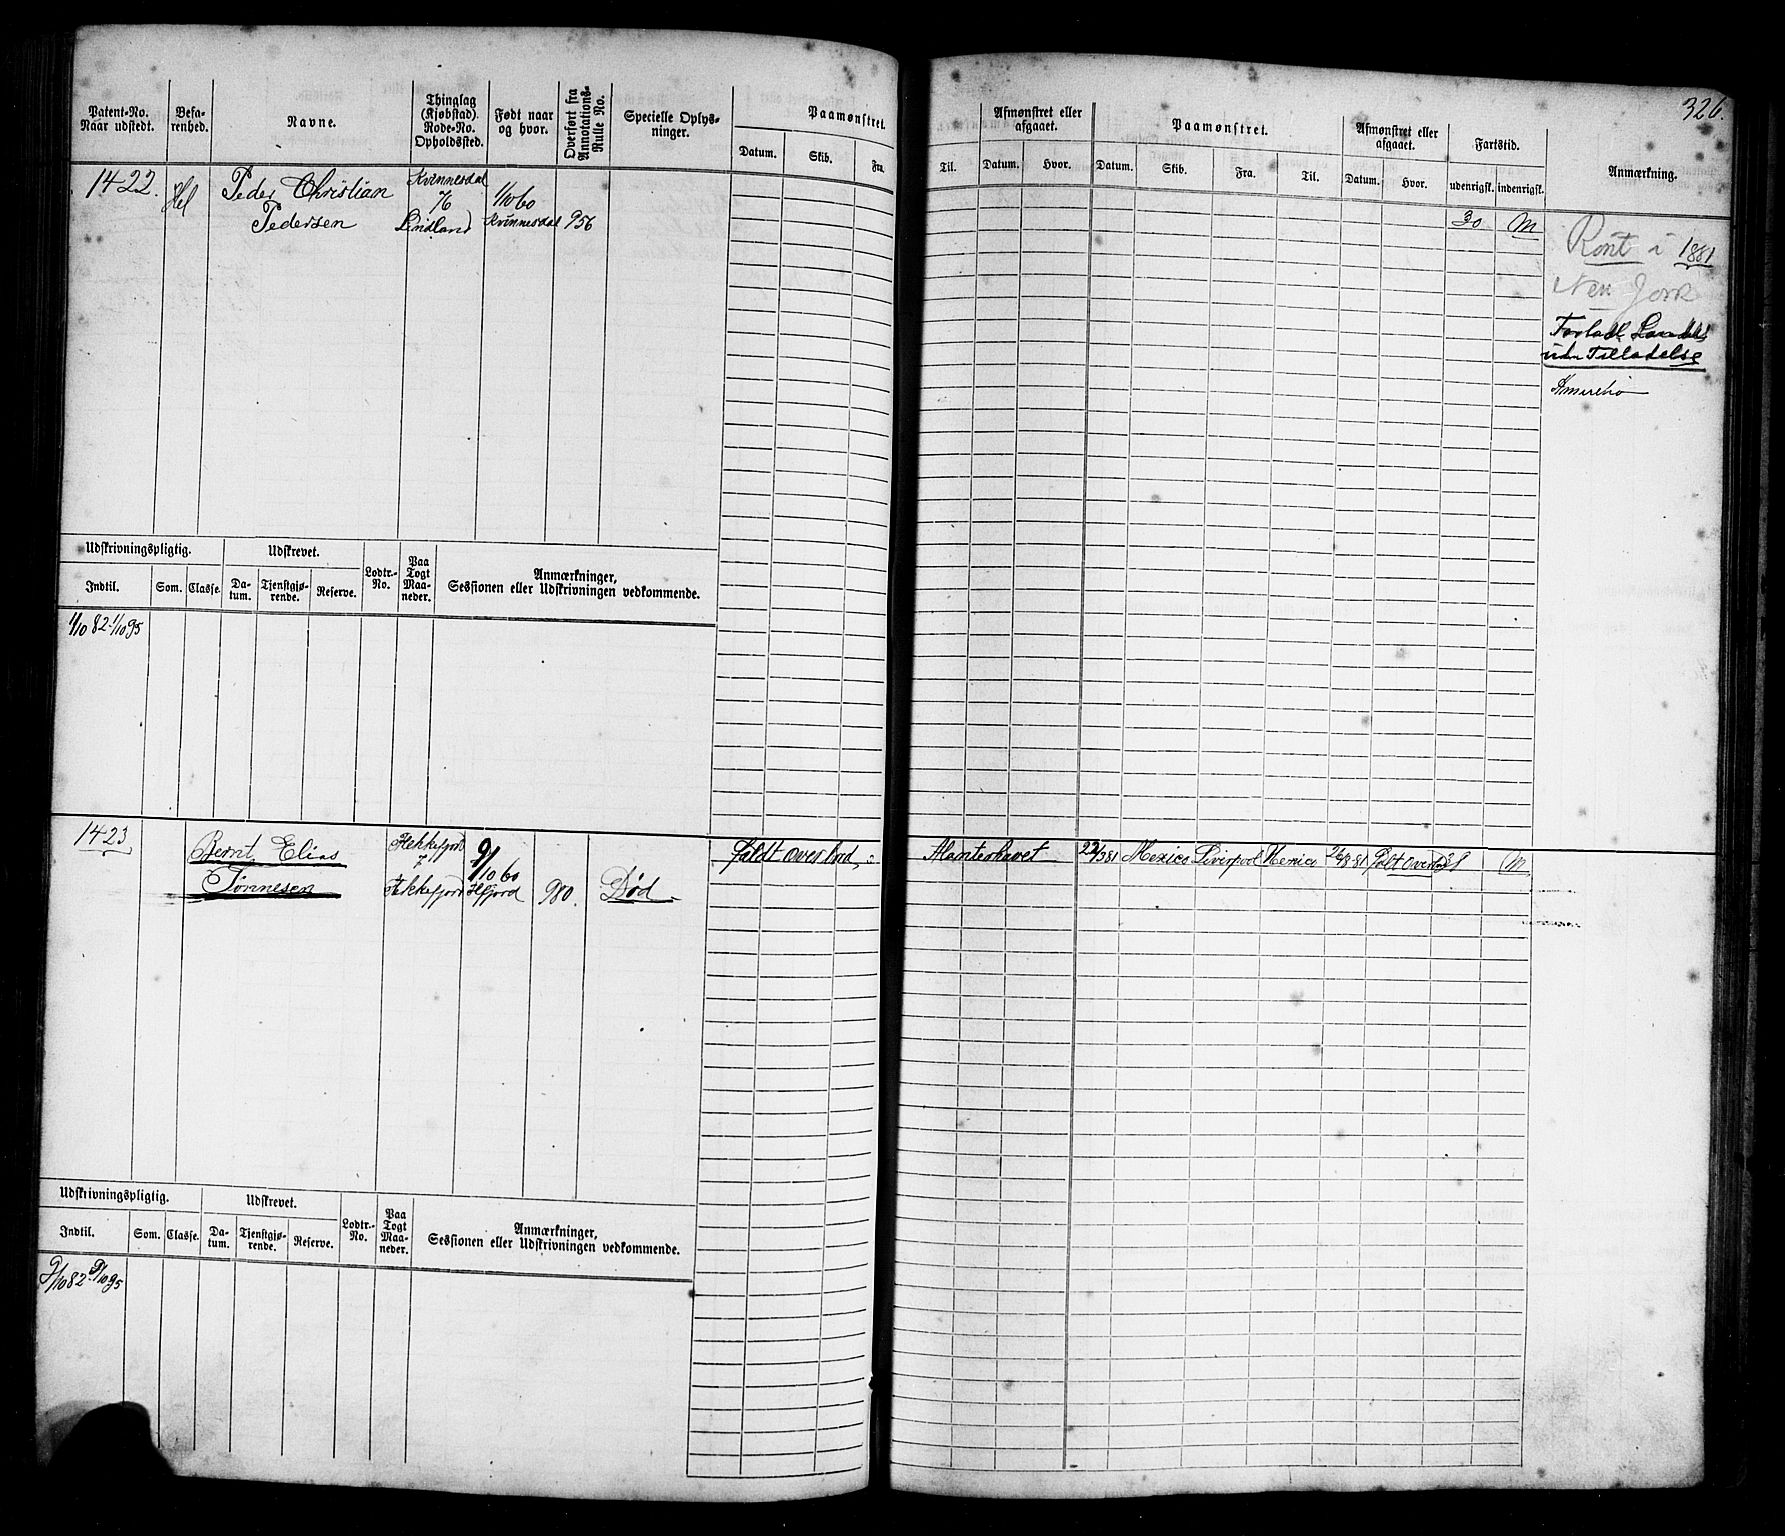 326.
Patent-No.
Naar udstedt.
Befa-
renhed.
Navne.
Thinglag
(Kjøbstad).
Rode-No.
Opholdssted.
Født naar
og hvor.
Overført fra
Annotations-
Rulle No.
Specielle Oplys-
ninger.
Paamønstret.
Datum. Skib. Fra.
Til.
Afmønstret eller
afgaaet.
Datum. Hvor.
Paamønstret.
Datum. Skib. Fra. Til.
Afmønstret eller
afgaaet.
Datum. Hvor.
Fartstid.
udenrigsk. indenrigsk.
Anmærkning.
1422.
Peder Christian
Pedersen
Kvinnesdal
76
Lindland
1/10 60
Kvinnesdal
956
30 M
Rømt i 1881
New York
Forladt Landet
uden Tilladelse
Udskrivningspligtig.
Indtil. Som. Classe.
Udskrevet.
Da-
tum.
Tjenstgjø-
rende.
Reserve.
Lodtr.-
No.
Paa
Togt
Maa-
neder.
Anmærkninger,
Sessionen eller Udskrivningen vedkommende.
1/10 82 1/10 95
1423
Bernt Elias
Tønnesen
7
9/10 60
980.
Død
faldt overbord
Atlanterhavet
Mexico Liverpool Mexico
faldt overbord
M
Udskrivningspligtig.
Indtil. Som. Classe.
Udskrevet.
Da-
tum.
Tjenstgjø-
rende.
Reserve.
Lodtr.-
No.
Paa
Togt
Maa-
neder.
Anmærkninger,
Sessionen eller Udskrivningen vedkommende.
9/10 82 9/10 95